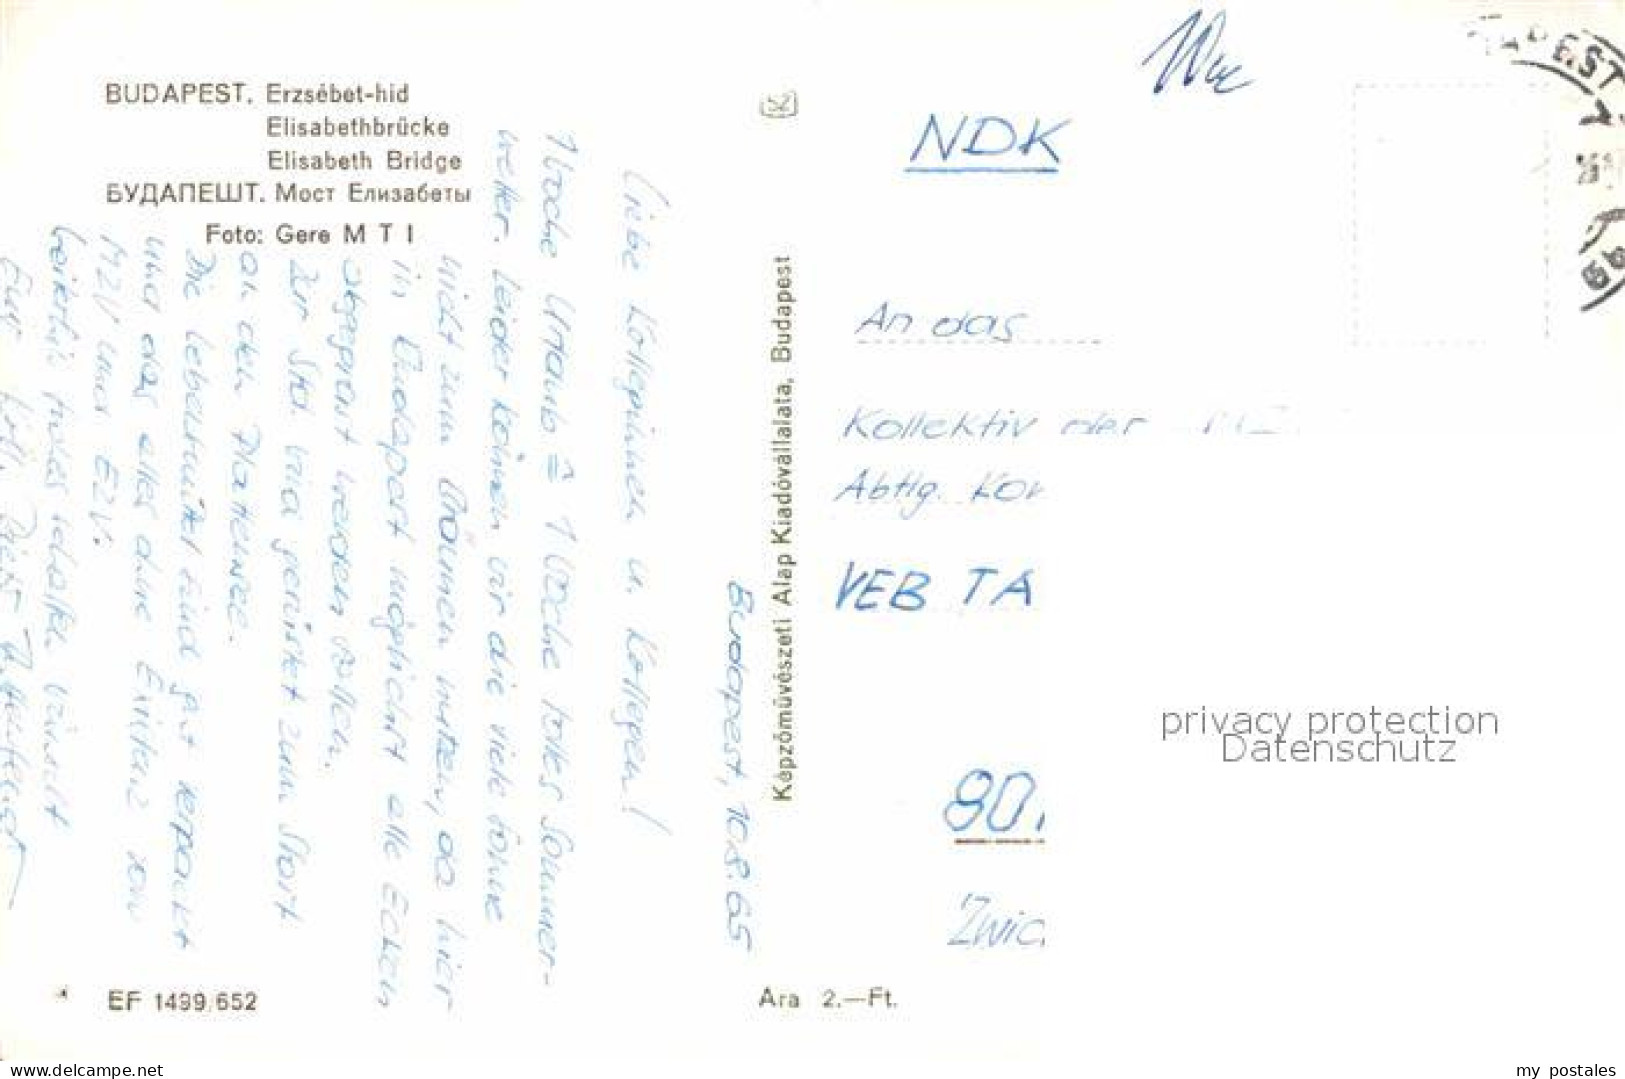 BUDAPEST. Erzsébet-hid
Elisabethbrücke
Elisabeth Bridge
БУДАПЕШТ. Мост Елизабеты
Foto: Gere M T I
Budapest, 10.8.65
Liebe Kolleginnen u. Kollegen!
1 Woche Urlaub ≙ 1 Woche tolles Sommer-
wetter. Leider können wir die viele Sonne
nicht zum Bräunen nutzen, da hier
in Budapest möglichst alle Ecken
abgegrast werden sollen.
Zur Zeit wird gerüstet zum Start
an den Plattensee.
Die Lebensmittel sind gut verpackt
und das alles ohne von
MZV und EZV.
frohes wünscht
Eure
Képzőművészeti Alap Kiadóvállalata, Budapest
NDK
An das
Kollektiv der
Abtlg.
VEB TA
80
Zwic
EF 1499/652
Ara 2.—Ft.
privacy protection
Datenschutz
www.delcampe.net
my_postales